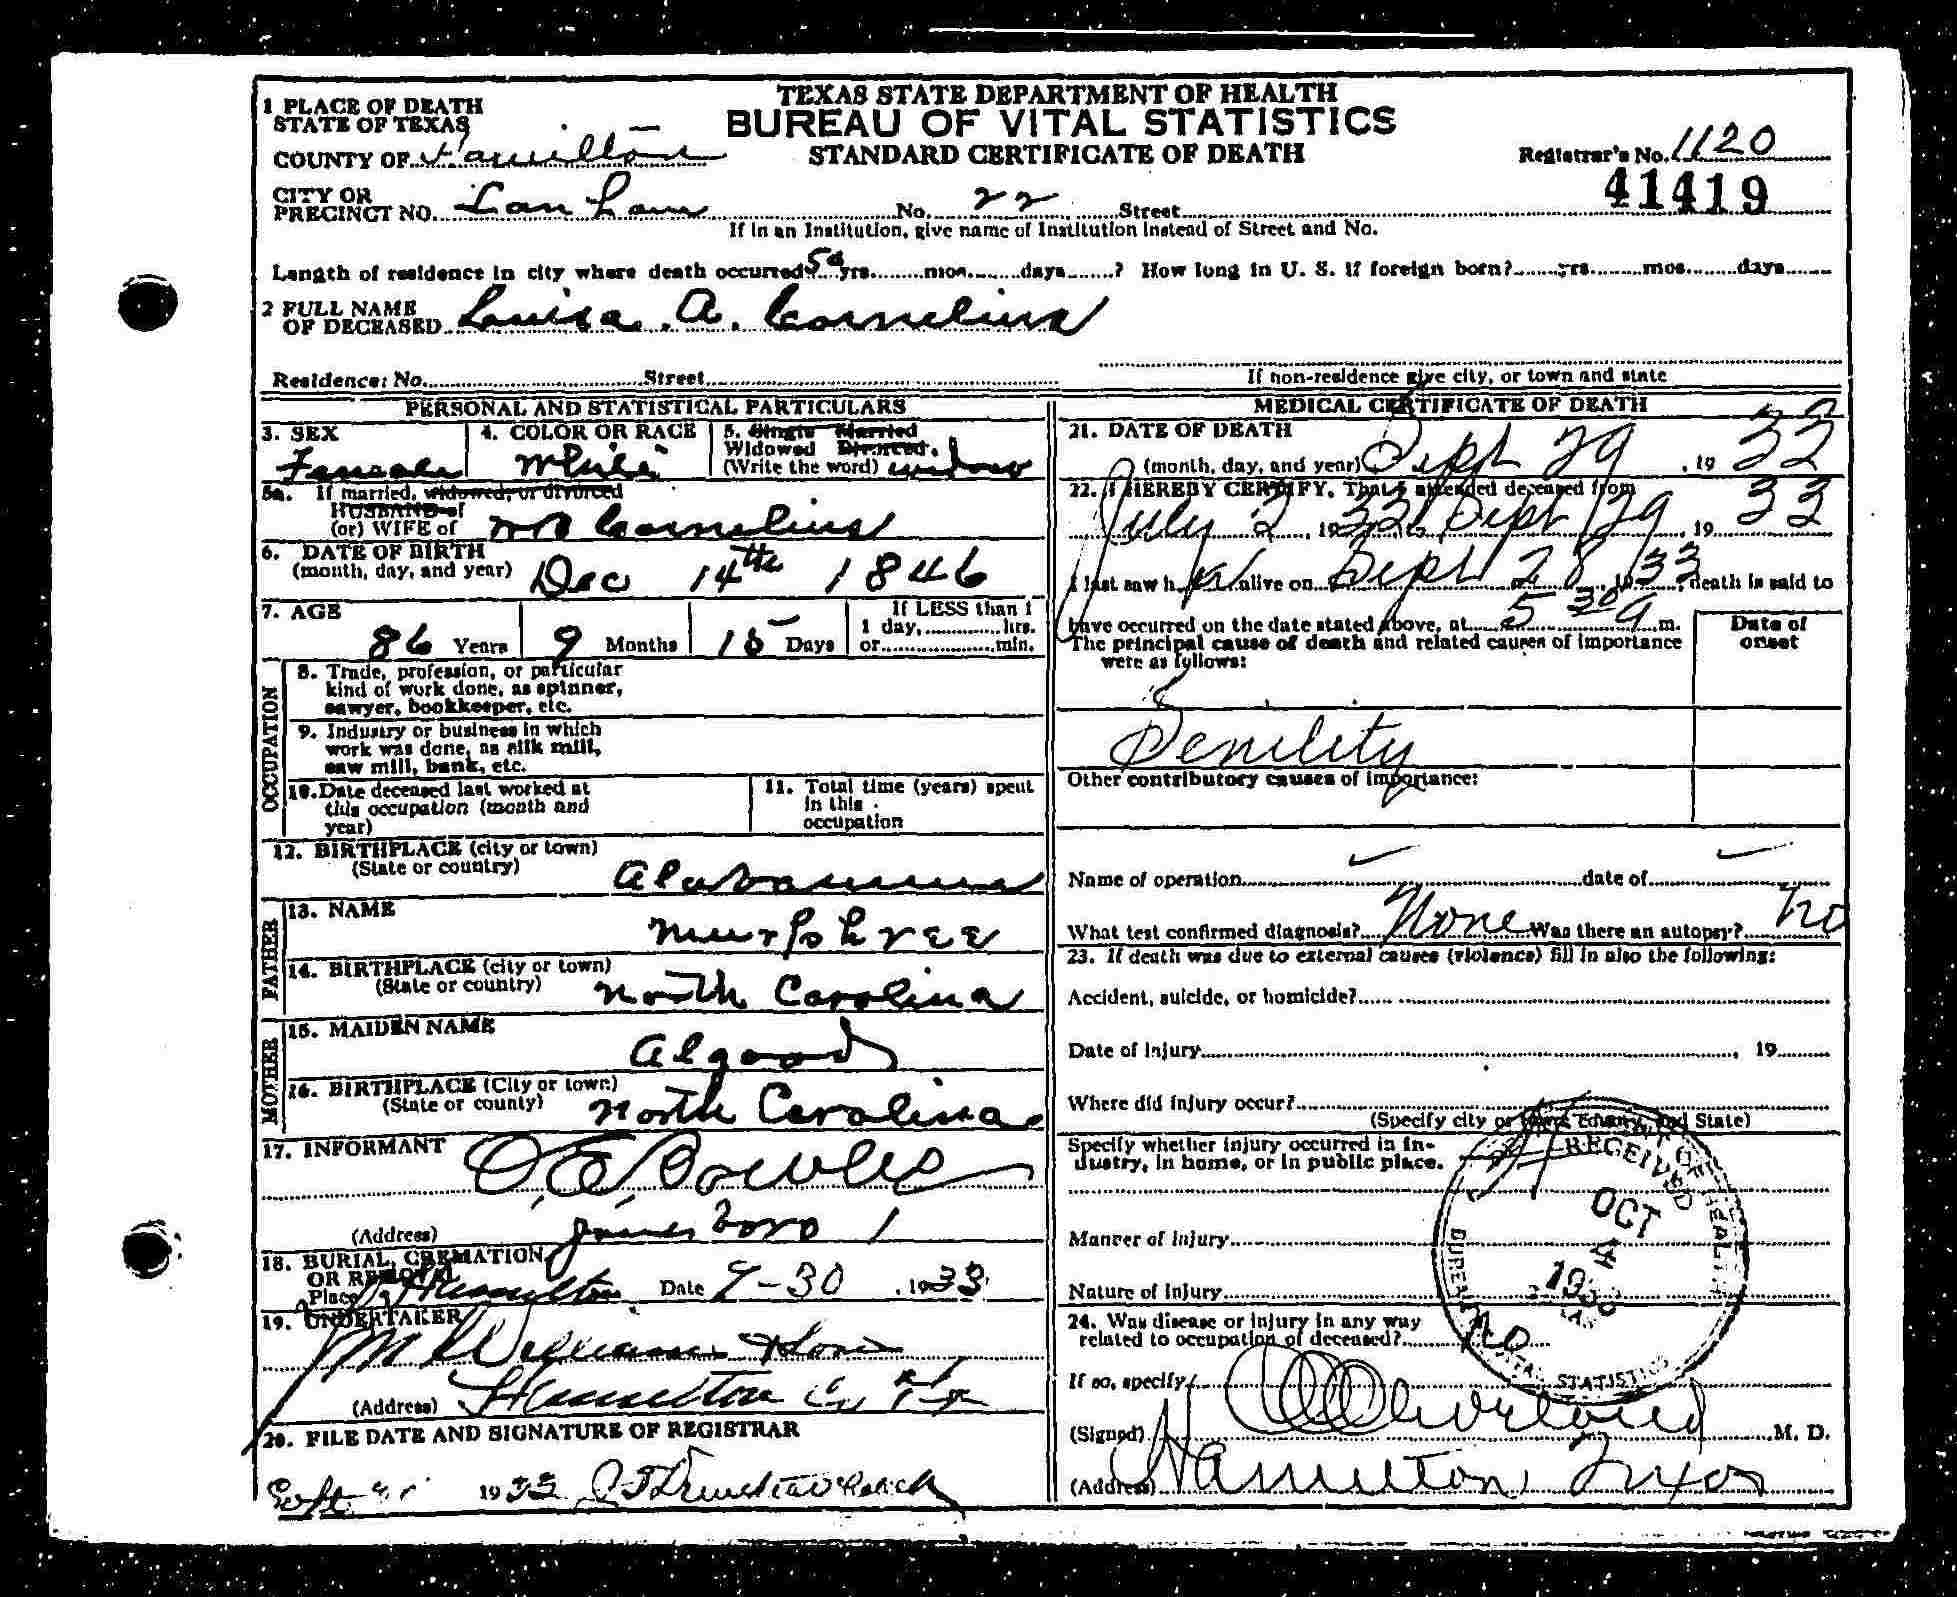 TEXAS STATE DEPARTMENT OF HEALTH
BUREAU OF VITAL STATISTICS
STANDARD CERTIFICATE OF DEATH
1 PLACE OF DEATH
STATE OF TEXAS
COUNTY OF Hamilton
Registrar's No. 1120
41419
CITY OR
PRECINCT NO. Lanham No. 22 Street
If in an Institution, give name of Institution instead of Street and No.
Length of residence in city where death occurred yrs. mos. days ? How long in U. S. if foreign born? yrs. mos. days
2 FULL NAME
OF DECEASED Luisa. A. Cornelius
Residence: No. Street
If non-residence give city, or town and state
PERSONAL AND STATISTICAL PARTICULARS
3. SEX
Female
4. COLOR OR RACE
White
5. Single Married
Widowed Divorced.
(Write the word) widow
5a. If married, widowed, or divorced
HUSBAND of
(or) WIFE of Cornelius
6. DATE OF BIRTH
(month, day, and year) Dec 14th 1846
7. AGE
86 Years 9 Months 15 Days
If LESS than 1
1 day, hrs.
or min.
OCCUPATION
8. Trade, profession, or particular
kind of work done, as spinner,
sawyer, bookkeeper, etc.
9. Industry or business in which
work was done, as silk mill,
saw mill, bank, etc.
10. Date deceased last worked at
this occupation (month and
year)
11. Total time (years) spent
in this
occupation
12. BIRTHPLACE (city or town)
(State or country) Alabamma
FATHER
13. NAME
Murphree
14. BIRTHPLACE (city or town)
(State or country) North Carolina
MOTHER
15. MAIDEN NAME
Algood
16. BIRTHPLACE (City or town)
(State or county) North Carolina
17. INFORMANT
O. E. Bowles
(Address) Jonesboro 1
18. BURIAL, CREMATION
OR REMOVAL
Place Hamilton Date 9-30 , 1933
19. UNDERTAKER
Williams & Sons
(Address) Hamilton Co Tex
20. FILE DATE AND SIGNATURE OF REGISTRAR
Sept 1933
MEDICAL CERTIFICATE OF DEATH
21. DATE OF DEATH
(month, day, and year) Sept 29 , 19 33
22. I HEREBY CERTIFY, That I attended deceased from
July 2 , 1933, to Sept 29 , 19 33
I last saw h er alive on Sept 28 , 1933, death is said to
have occurred on the date stated above, at 5 30 a m.
The principal cause of death and related causes of importance
were as follows:
Date of
onset
Senility
Other contributory causes of importance:
Name of operation date of
What test confirmed diagnosis? None Was there an autopsy? no
23. If death was due to external causes (violence) fill in also the following:
Accident, suicide, or homicide?
Date of injury , 19
Where did injury occur?
(Specify city or town, county, and State)
Specify whether injury occurred in in-
dustry, in home, or in public place.
Manner of injury
Nature of injury
24. Was disease or injury in any way
related to occupation of deceased? no
If so, specify
(Signed) Cleveland M. D.
(Address) Hamilton Texas
RECEIVED
OCT
4